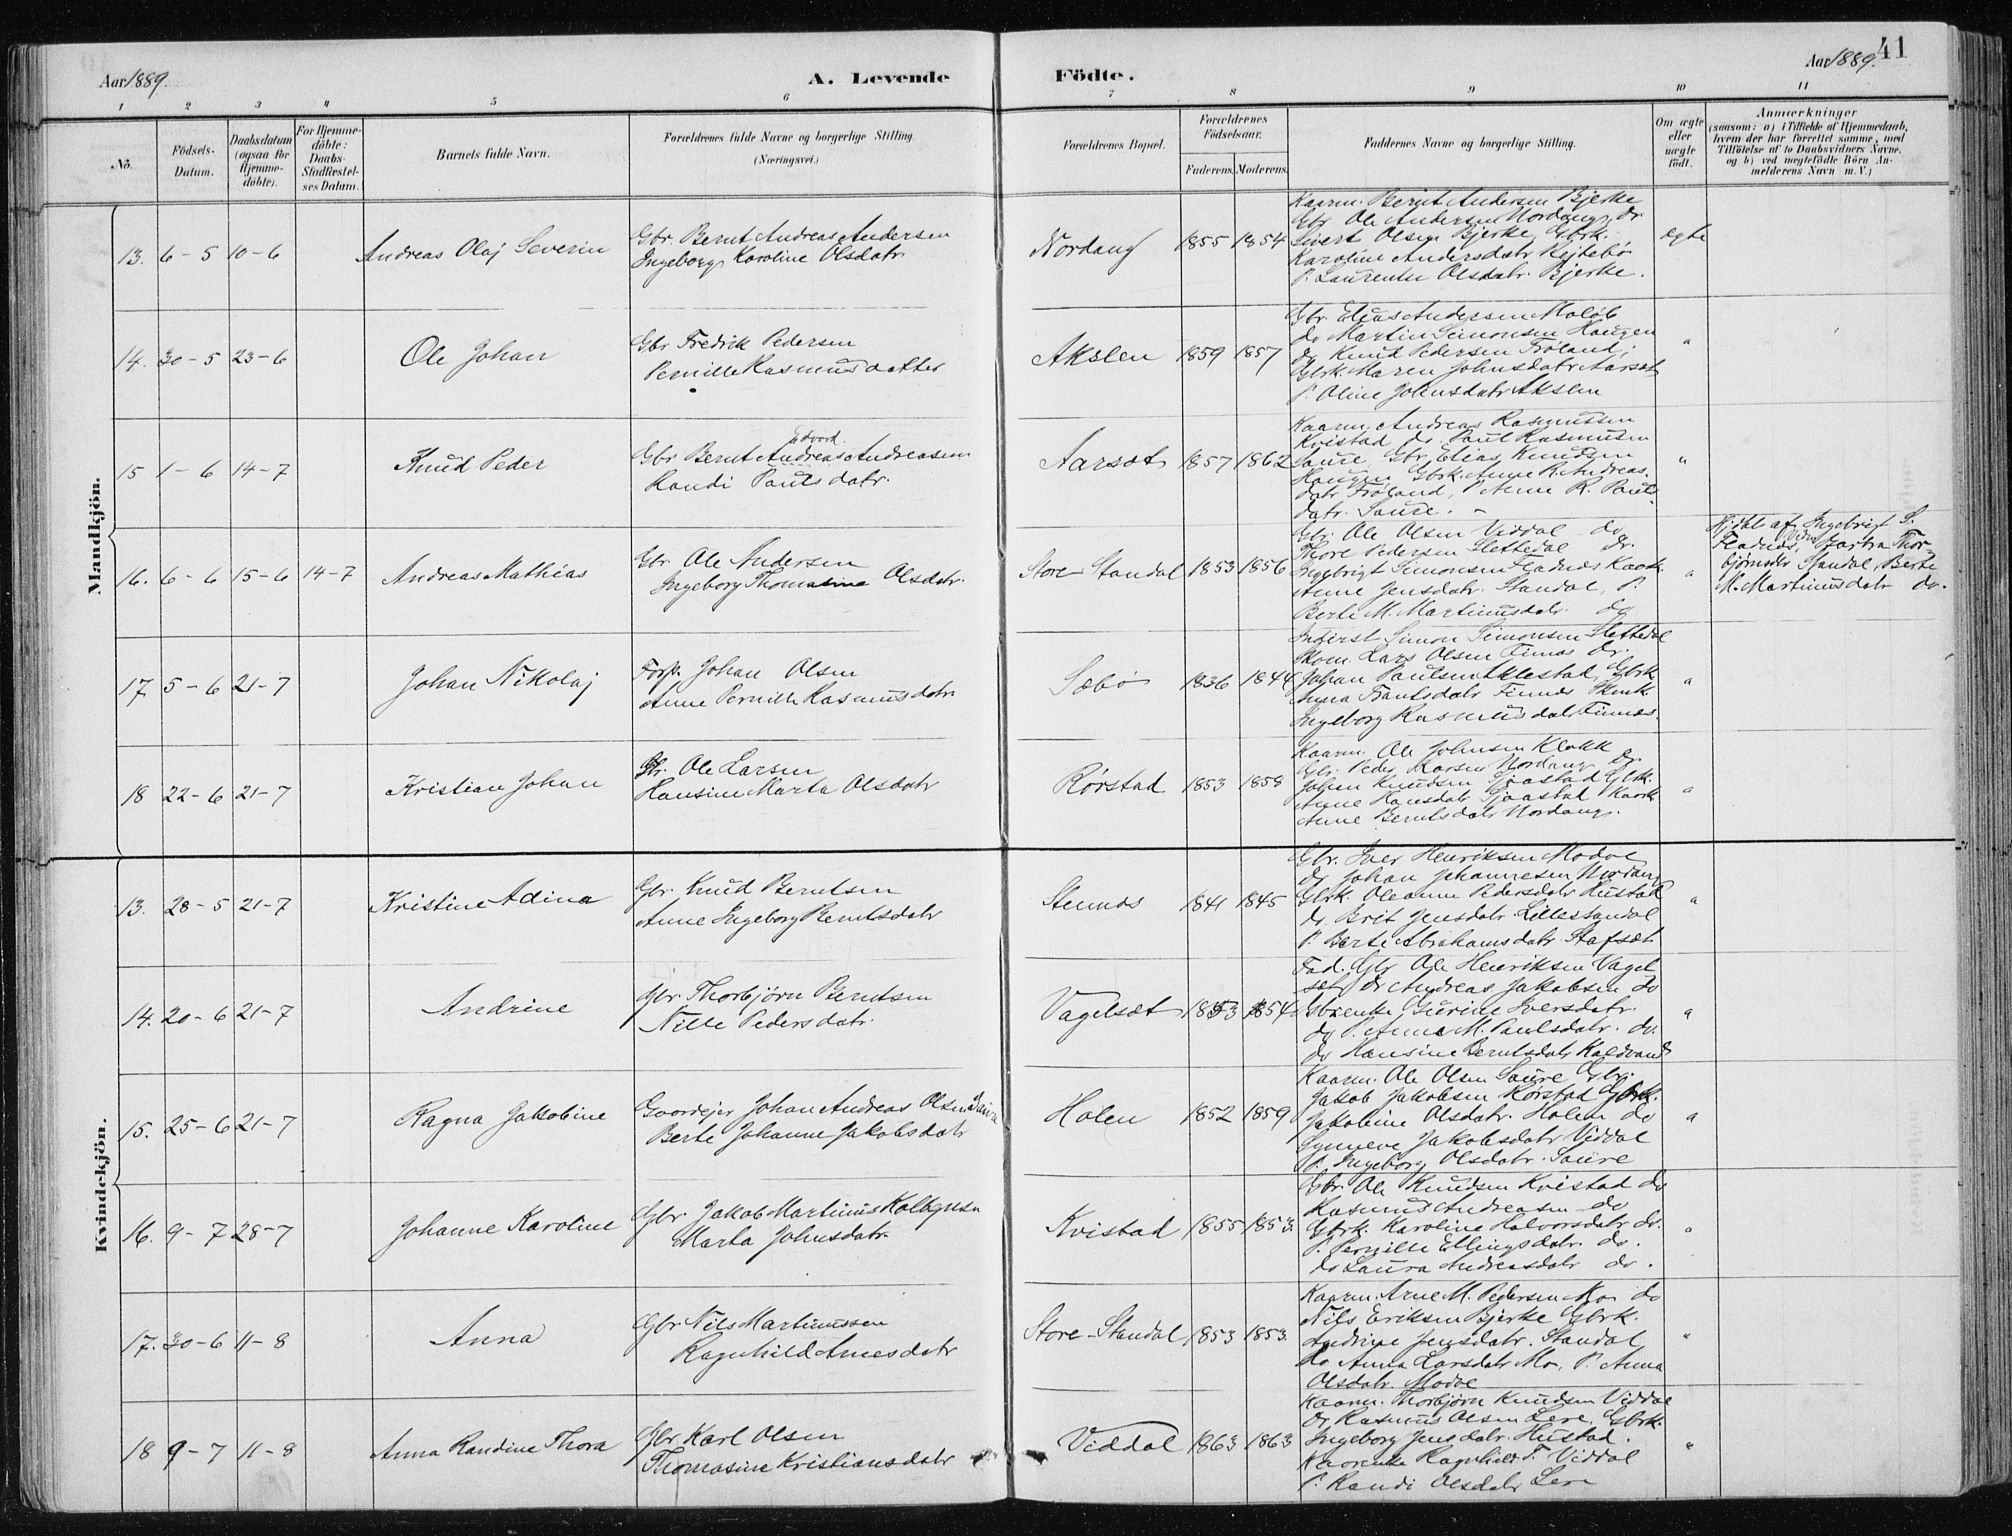 41
Aar 1889. A. Levende Födte. Aar 1889.
1 2 3 4 5 6 7 8 9 10 11
No.
Födsels-Datum.
Daabsdatum (ogsaa for Hjemme-döbte).
For Hjemme-döbte: Daabs-Stadfæstel-ses Datum.
Barnets fulde Navn.
Forældrenes fulde Navne og borgerlige Stilling.
(Næringsvei.)
Forældrenes Bopæl.
Forældrenes Födselsaar.
Faderens. Moderens.
Faddernes Navne og borgerlige Stilling.
Om ægte eller uægte födt.
Anmærkninger
(saasom: a) i Tilfælde af Hjemmedaab,
hvem der har forrettet samme, med
Tilföielse af to Daabsvidners Navne,
og b) ved uægtefödte Börn An-
melderens Navn m. V.)
Mandkjön.
13. 6-5 10-6 Andreas Olaj Severin
Gbr. Bernt Andreas Andersen
Ingeborg Karoline Olsdatr
Nordang 1855 1854
Kaarm. Bernt Andersen Bjerke
Gbr. Ole Andersen Nordang, do
Sivert Olsen Bjerke, Gbrk.
Karoline Andersdatr
P. Laurentse Olsdatr. Bjerke.
ægte
14. 30-5 23-6 Ole Johan
Gbr Fredrik Pedersen
Pernille Rasmusdatter
Akslen 1859 1857
Gbr. Elias Andersen
do Martin Simonsen Haugen
do Knud Pedersen Frøland,
Gbrk. Maren Johnsdatr Aarsæt
P. Oline Johnsdatr Akslen
"
15 1-6 14-7 Knud Peder
Edvard
Gbr Bernt Andreas Andreasen
Randi Paulsdatr.
Aarsæt 1857 1862
Kaarm. Andreas Rasmussen
Kvistad do. Paul Rasmusen
Saure Gbr. Elias Knudsen
Haugen Gbrk. Anne R. Andreas-
datr Frøland, P Anne R. Pauls
datr. Saure. -
"
16. 6-6 15-6 14-7 Andreas Mathias
Gbr. Ole Andersen
Ingeborg Thomasine Olsdatr.
Store-Standal 1853 1856
Gbr. Ole Olsen Viddal do
Thore Pedersen Slettedal do.
Ingebrigt Simonsen Fladnes Kaark.
Anne Jensdatr. Standal, P.
Berte M. Martinusdatr do
"
Hjdbt af Ingebrigt S.
Fladnes, Vidn Marta Thor-
bjørnsdr Standal, Berte
M. Martinusdatr do.
17 5-6 21-7 Johan Nikolaj
Forp. Johan Olsen
Anne Pernille Rasmusdatr
Sæbø 1836 1844
Inderst Simon Simonsen Slettedal
Skom. Lars Olsen Finnes do.
Johan Paulsen Aklestad, Gbrk
Anna Frantsdatr Finnes
Ingeborg Rasmusdatr Finnes.
"
18 22-6 21-7 Kristian Johan
Gbr. Ole Larsen
Hansine Marta Olsdatr
Rørstad 1853 1858
Kaarm. Ole Johnsen Klokk
Gbr. Peder Larsen Nordang do
Johan Knudsen Sjaastad Gbrk.
Anne Hansdatr Sjaastad Kaark
Anne Berntsdatr Nordang.
"
Kvindekjön.
13. 28-5 21-7 Kristine Adina
Gbr Knud Berntsen
Anne Ingeborg Berntsdatr
Stennes 1841 1845
Gbr. Iver Henriksen Modal
do Johan Johannesen Nordang
Gbrk. Oleanne Pedersdatr Hustad
do Brit Jensdatr. Lillestandal
P. Berte Abrahamsdatr Stafsæt
"
14. 20-6 21-7 Andrine
Gbr Thorbjørn Berntsen
Nille Pedersdatr.
Vagelsæt 1853 1854
Fad. Gbr Ole Henriksen Vagel
sæt do Andreas Jakobsen do
Gbrenke Gurine Iversdatr.
do P. Anne M. Paulsdatr. do.
do Hansine Berntsdatr Kaldvand
"
15. 25-6 21-7 Ragna Jakobine
Gaardejer Johan Andreas Olsen Saure
Berte Johanne Jakobsdatr
Holen 1852 1859
Kaarm. Ole Olsen Saure Gbr.
Jakob Jakobsen Rørstad Gbrk.
Jakobine Olsdatr. Holen do
Synneve Jakobsdatr Viddal
P. Ingeborg Olsdatr. Saure
"
16. 9-7 28-7 Johanne Karoline
Gbr. Jakob Martinus
Marta Johnsdatr
Kvistad 1855 1853.
Gbr Ole Knudsen Kvistad do
Rasmus Andreasen do
Gbrk. Karoline Halvorsdatr do.
P. Pernille Ellingsdatr. do.
do Laura Andreasdatr do.
"
17. 30-6 11-8 Anna
Gbr Nils Martinussen
Ragnhild Arnesdatr
Store-Standal 1853 1853.
Kaarm. Arne M. Pedersen Mo do
Nils Eriksen Bjerke Gbrk.
Andrine Jensdatr. Standal
do Anna Larsdatr Mo, P. Anna
Olsdatr. Modal
"
18 9-7 11-8 Anna Randine Thora
Gbr Karl Olsen
Thomasine Kristiansdatr
Viddal 1863 1863
Kaarm. Thorbjørn Knudsen Viddal
do Rasmus Olsen Lere, Gbrk.
Ingeborg Jensdatr. Hustad.
Kaarenke Ragnhild T. Viddal
P. Randi Olsdatr Lere
"